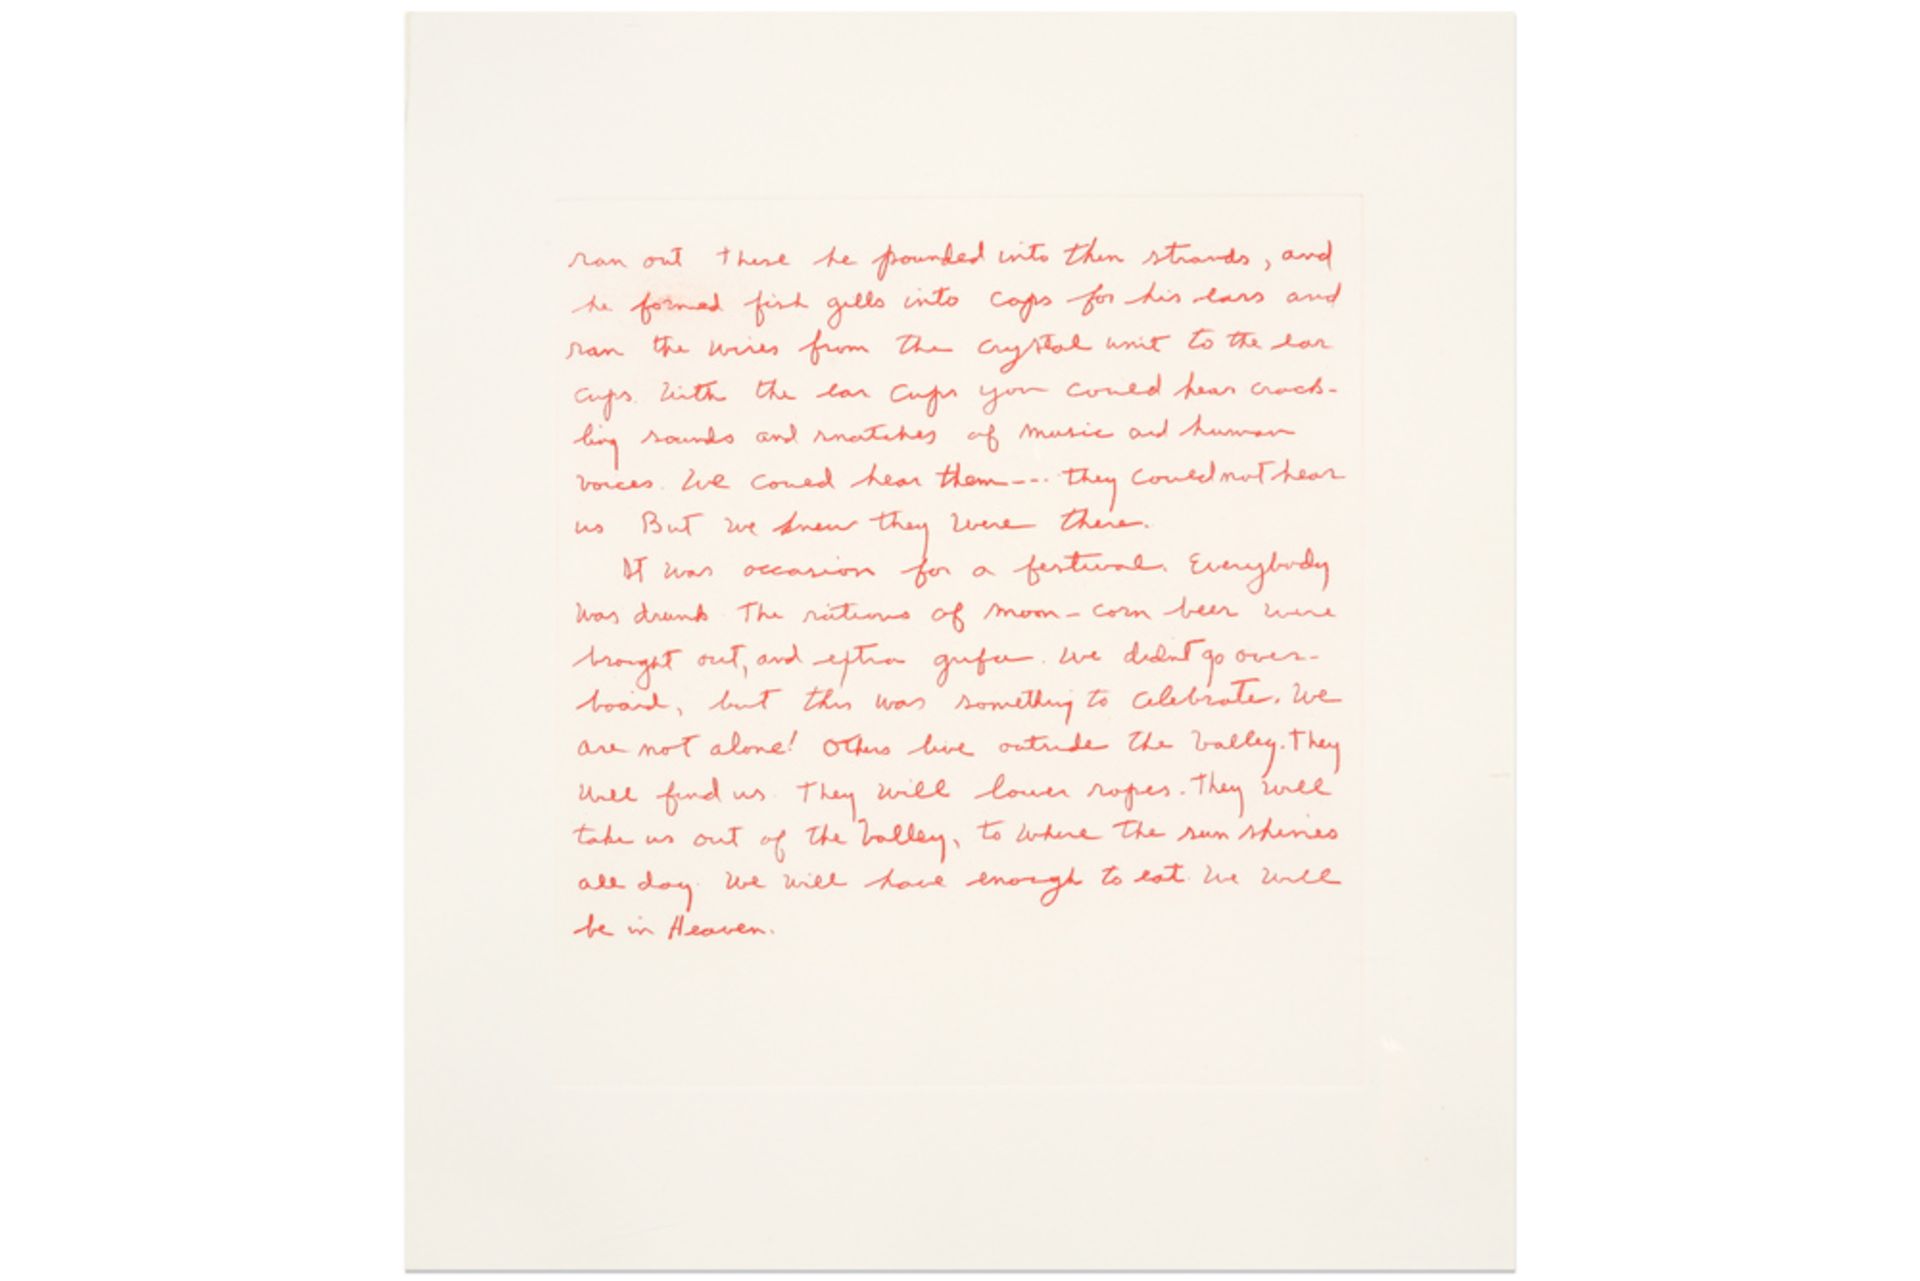 ran out these he pounded into thin strands, and
he formed fish gills into cups for his ears and
ran the wires from the crystal unit to the ear
cups. With the ear cups you could hear crack-
ling sounds and snatches of music and human
voices. We could hear them---. they could not hear
us But we knew they were there.
It was occasion for a festival. Everybody
was drunk The rations of moon-corn beer were
brought out, and extra. We didn't go over-
board, but this was something to celebrate. We
are not alone! Others live outside the Valley. They
will find us. They will lower ropes. They will
take us out of the Valley, to where the sun shines
all day. We will have enough to eat. We will
be in Heaven.